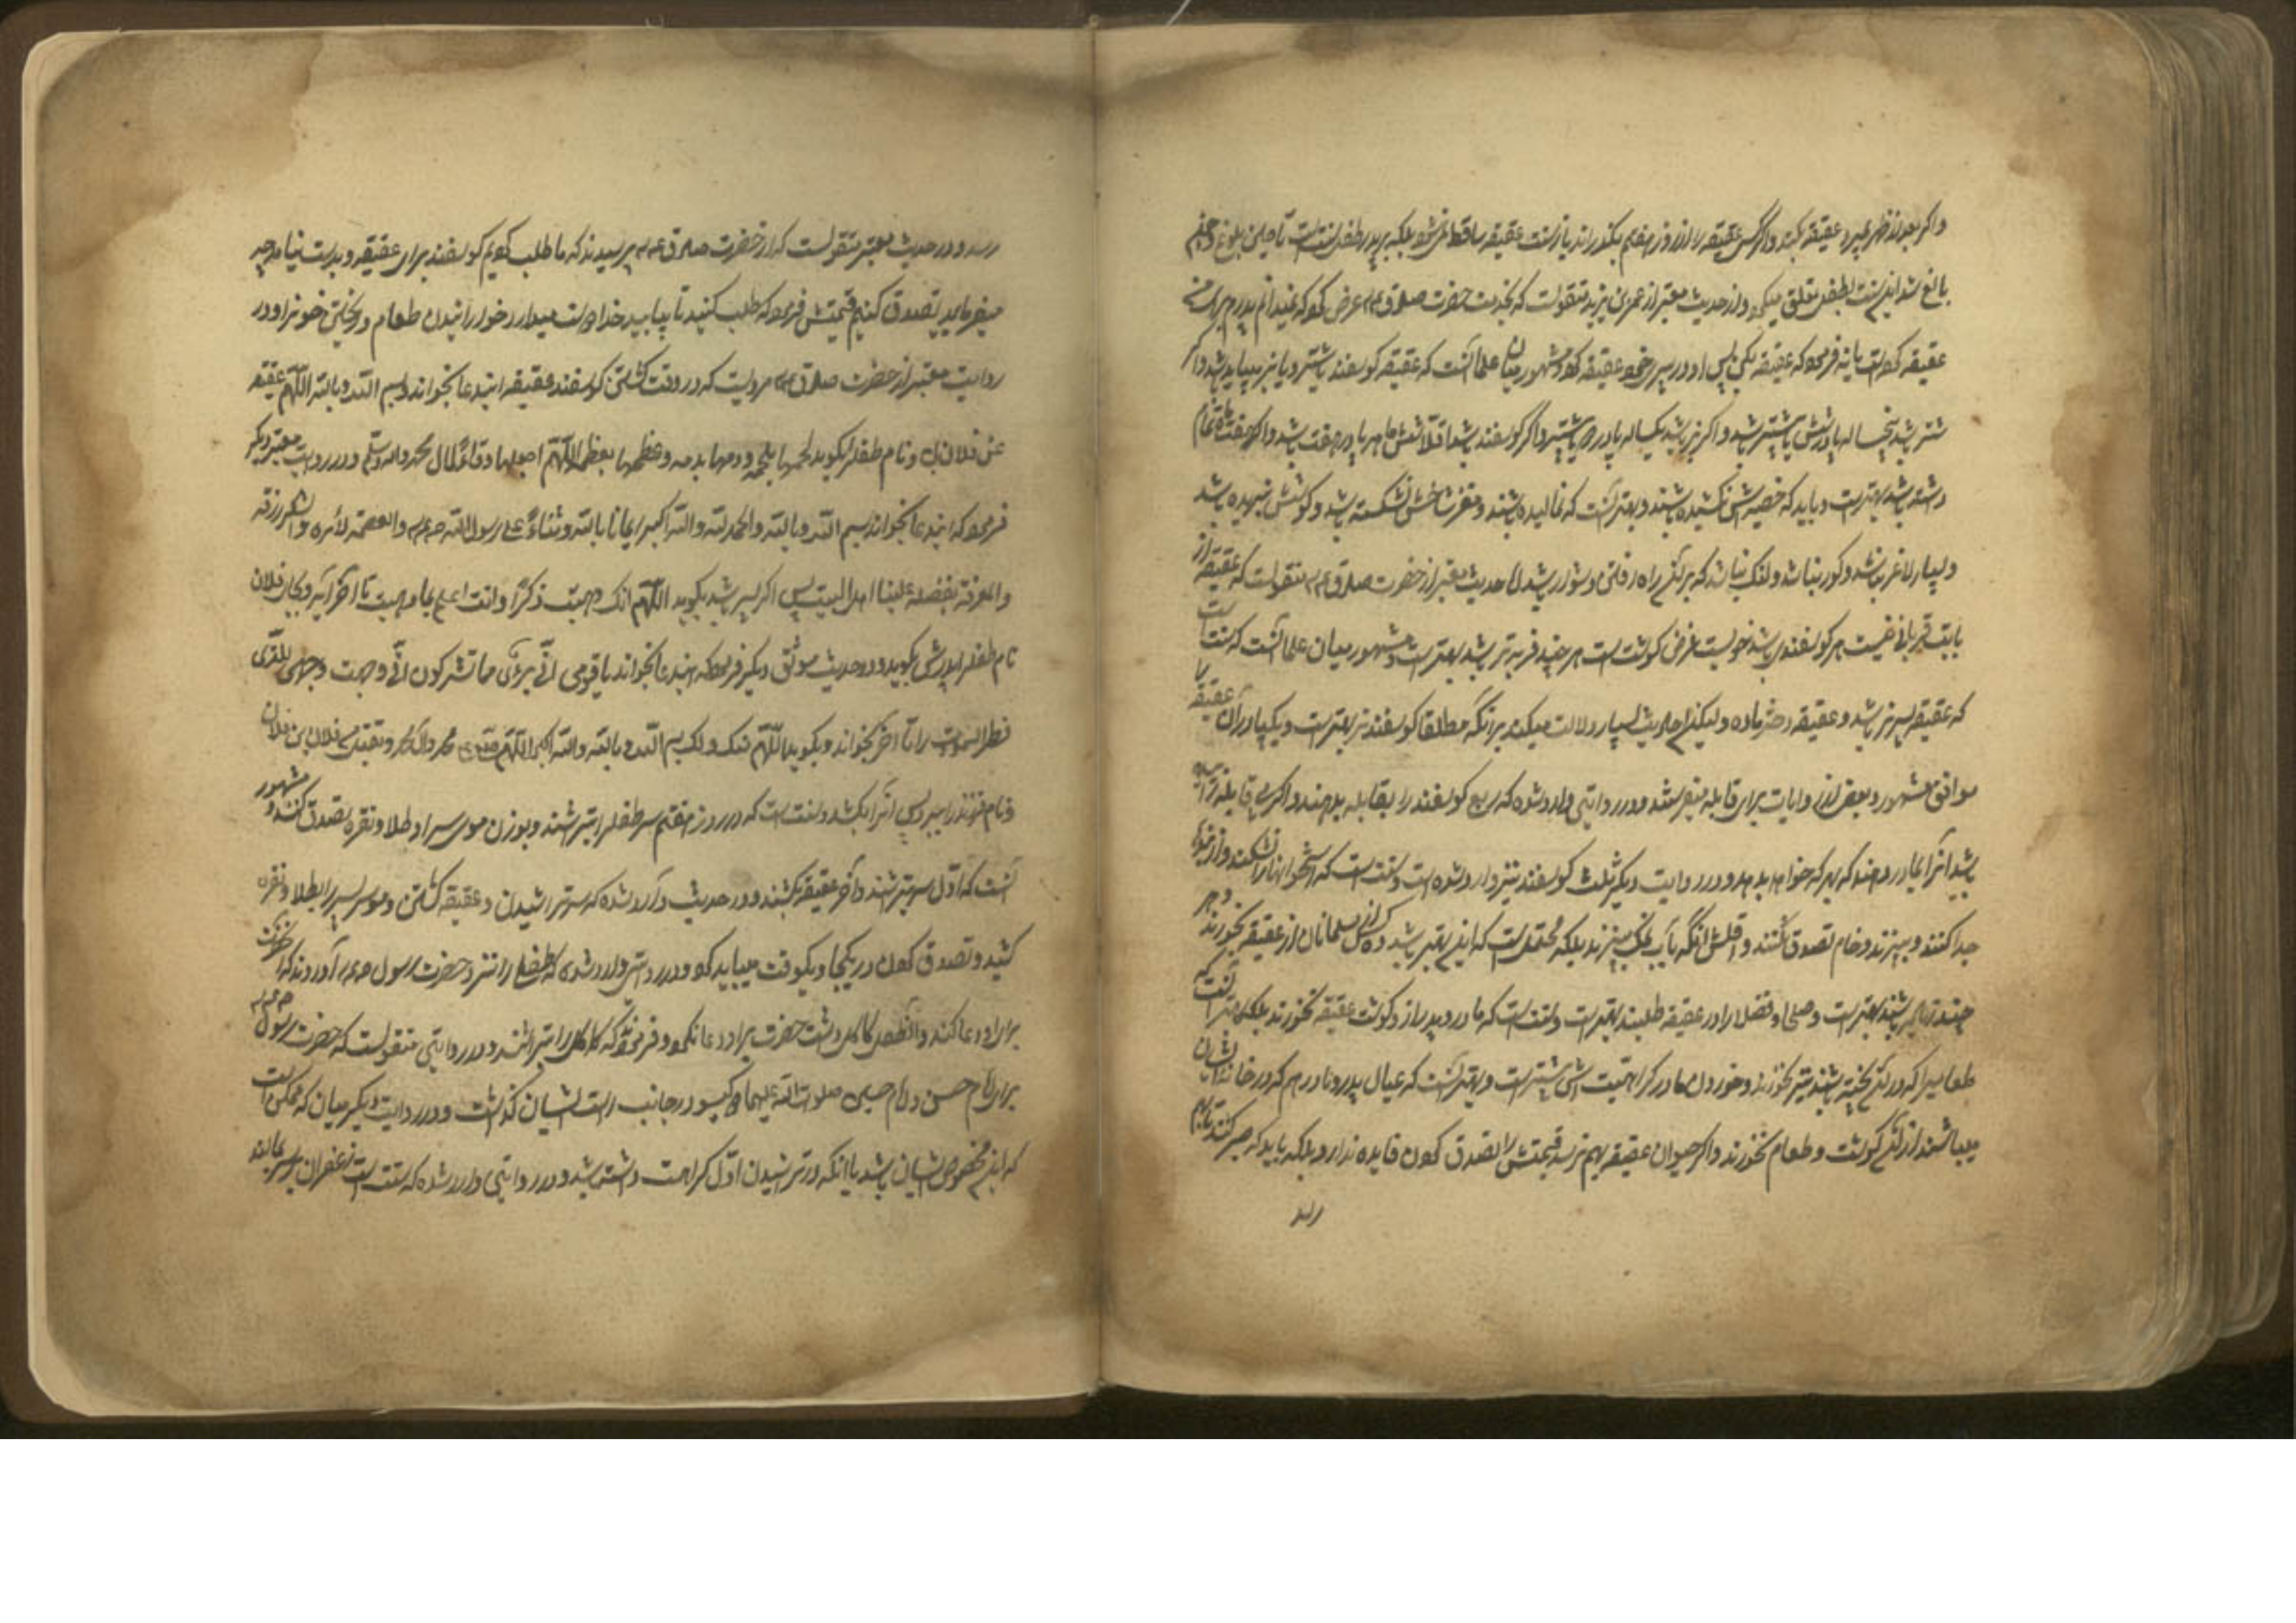 و اگر بعد از ظهر بمیرد عقیقه بکنند و اگر کسی عقیقه را از روز هفتم بگذراند باز سنت عقیقه ساقط نمیشود بلکه بر پدر طفل سنت است تا حین بلوغ و چون
بالغ شد این سنت بطفل متعلق میگردد و در حدیث معتبر از عمر بن یزید منقولست که بخدمت حضرت صادق ع م عرض کرد که نمیدانم پدرم برای من
عقیقه کرده است یا نه فرمود که عقیقه بکن پس او در پیری خود عقیقه کرد و مشهور میان علما آنست که عقیقه گوسفند یا شتر و یا بز میباید باشد و اگر
شتر باشد پنجساله یا در شش یا بیشتر باشد و اگر بز باشد یکساله پا در دو یا بیشتر و اگر گوسفند باشد اقلا شش ماهه یا در هفت باشد و اگر هفت ماه تمام
داشته باشد بهتر است و باید که خصیه‌اش نکشیده باشند و بهتر آنست که نمالیده باشند و مغز شاخش نشکسته باشد و گوشش نبریده باشد
و بسیار لاغر نباشد و کور نباشد و لنگ نباشد که بر آن راه رفتن دشوار باشد اما حدیث معتبر از حضرت صادق ع م منقولست که عقیقه از
بابت قربانی نیست هر گوسفندی باشد خوبست غرض گوشت است هر چند فربه تر باشد بهتر است و مشهور میان علما آنست که سنت است
که عقیقه پسر نر باشد و عقیقه دختر ماده ولیکن احادیث بسیار دلالت میکند بر آنکه مطلقا گوسفند نر بهتر است و یکپا و ران عقیقه را
موافق مشهور و بعضی از روایات برای قابله میفرستند و در روایتی وارد شده که ربع گوسفند را بقابله بدهند و اگر بی قابله زائیده
باشد آنرا بمادر دهند که بهر که خواهد بدهد و در روایت دیگر ثلث گوسفند نیز وارد شده است و سنت است که استخوانها را نشکنند و از بندها
جدا کنند و بپزند و خام تصدق نکنند و اقلش آنکه بآب نمک بپزند بلکه محتملست که این بهتر باشد و ده کس از مسلمانان از عقیقه بخورند و هر
چند زیاده باشند بهتر است و صلحا و فضلا را در عقیقه طلبند بهتر است و سنت است که مادر و پدر از گوشت عقیقه نخورند بلکه بهتر آنست که
طعامیرا که در آن پخته باشند نیز نخورند و خوردن مادر کراهیت‌اش بیشتر است و بهتر آنست که عیال پدر و مادر هم که در خانه ایشان
میباشند از آن گوشت و طعام نخورند و اگر حیوان عقیقه بهم نرسد قیمتش را تصدق کردن فایده ندارد بلکه باید که صبر کنند تا بهم
رسد
رسد و در حدیث معتبر منقولست که از حضرت صادق ع م پرسیدند که ما طلب کردیم گوسفند برای عقیقه و بدست نیامد چه
میفرمایید تصدق کنیم قیمتش فرمود که طلب کنید تا بیابید خدا دوست میدارد خورانیدن طعام و ریختن خون را و در
روایت معتبر از حضرت صادق ع م مرویست که در وقت کشتن گوسفند عقیقه این دعا بخواند بسم الله و بالله اللهم عقیقة
عن فلان بن و نام طفل را بگوید لحمها بلحمه و دمها بدمه و عظمها بعظمه اللهم اجعلها وقاءً لآل محمد و اله و سلم و در روایت معتبر دیگر
فرمود که این دعا بخواند بسم الله و بالله و الحمد لله و الله اکبر ایمانا بالله و ثناءً علی رسول الله ص ع م و العصمة لأمره و الشکر لرزقه
و المعرفة بفضله علینا اهل البیت پس اگر پسر باشد بگوید اللهم انک وهبت ذکرًا و انت اعلم بما وهبت تا آخر آیه و بجای فلان
نام طفل را پدرش بگوید و در حدیث موثق دیگر فرمود که این دعا بخواند یا قومی انّی بری‌ء مما تشرکون انّی وجهت وجهی للذی
فطر السموات را تا آخر بخواند و بگوید اللهم منک و لک بسم الله و بالله و الله اکبر اللهم صل علی محمد و آل محمد و تقبل من فلان بن فلان
و نام فرزند را ببرد پس آنرا بکشد و سنت است که در روز هفتم سر طفل را بتراشند و بوزن موی سر او طلا و نقره تصدق کنند و مشهور
آنست که اول سر بتراشند و آخر عقیقه بکشند و در حدیث وارد شده که سر تراشیدن و عقیقه کشتن و موی سر را بطلا و نقره
کشیده تصدق کردن در یکجا و یکوقت میباید کرد و در روایتی وارد شده که طفلی را نزد حضرت رسول ص ع م آوردند که آنحضرت
برای او دعا کند و آن طفل کاکل داشت حضرت برای او دعا نکرد و فرمود که کاکل را بتراشند و در روایتی منقولست که حضرت رسول ص ع م
برای امام حسن و امام حسین صلوات الله علیهما دو گیسو در جانب راست ایشان گذاشت و در روایت دیگر میان که ممکن است
که این مخصوص ایشان باشد یا آنکه در تراشیدن اول کراهت داشته باشد و در روایتی وارد شده که سنت است زعفران بر سر بمالند